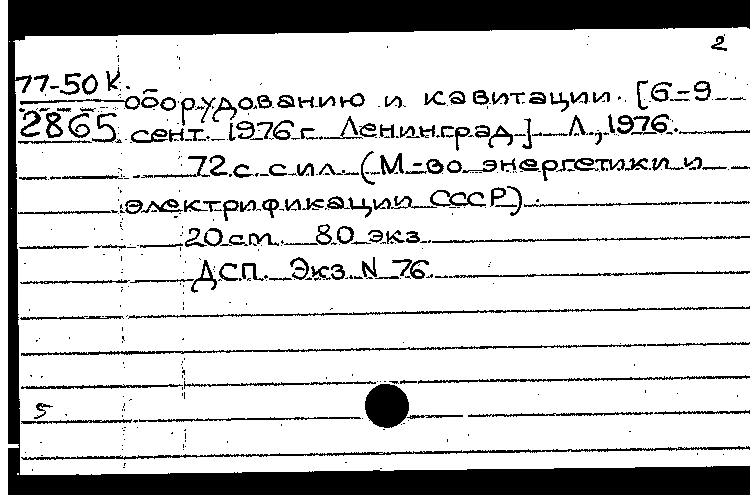 2
77-50 К.
2865
оборудованию и кавитации. [6-9
сент. 1976 г. Ленинград] Л., 1976.
72 с. с ил. (М-во энергетики и
электрификации СССР).
20 см. 80 экз.
ДСП. Экз. N 76.
5